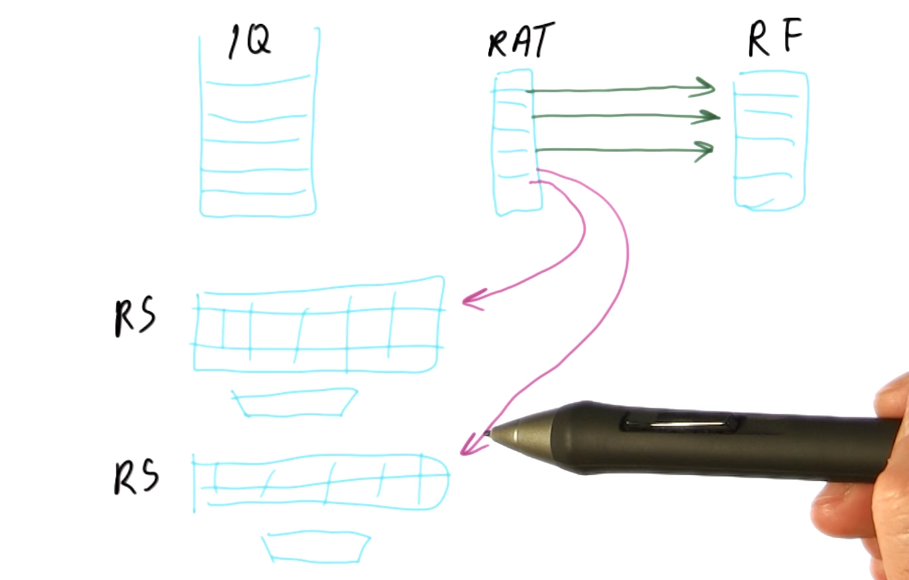 IQ
RAT
RF
RS
RS